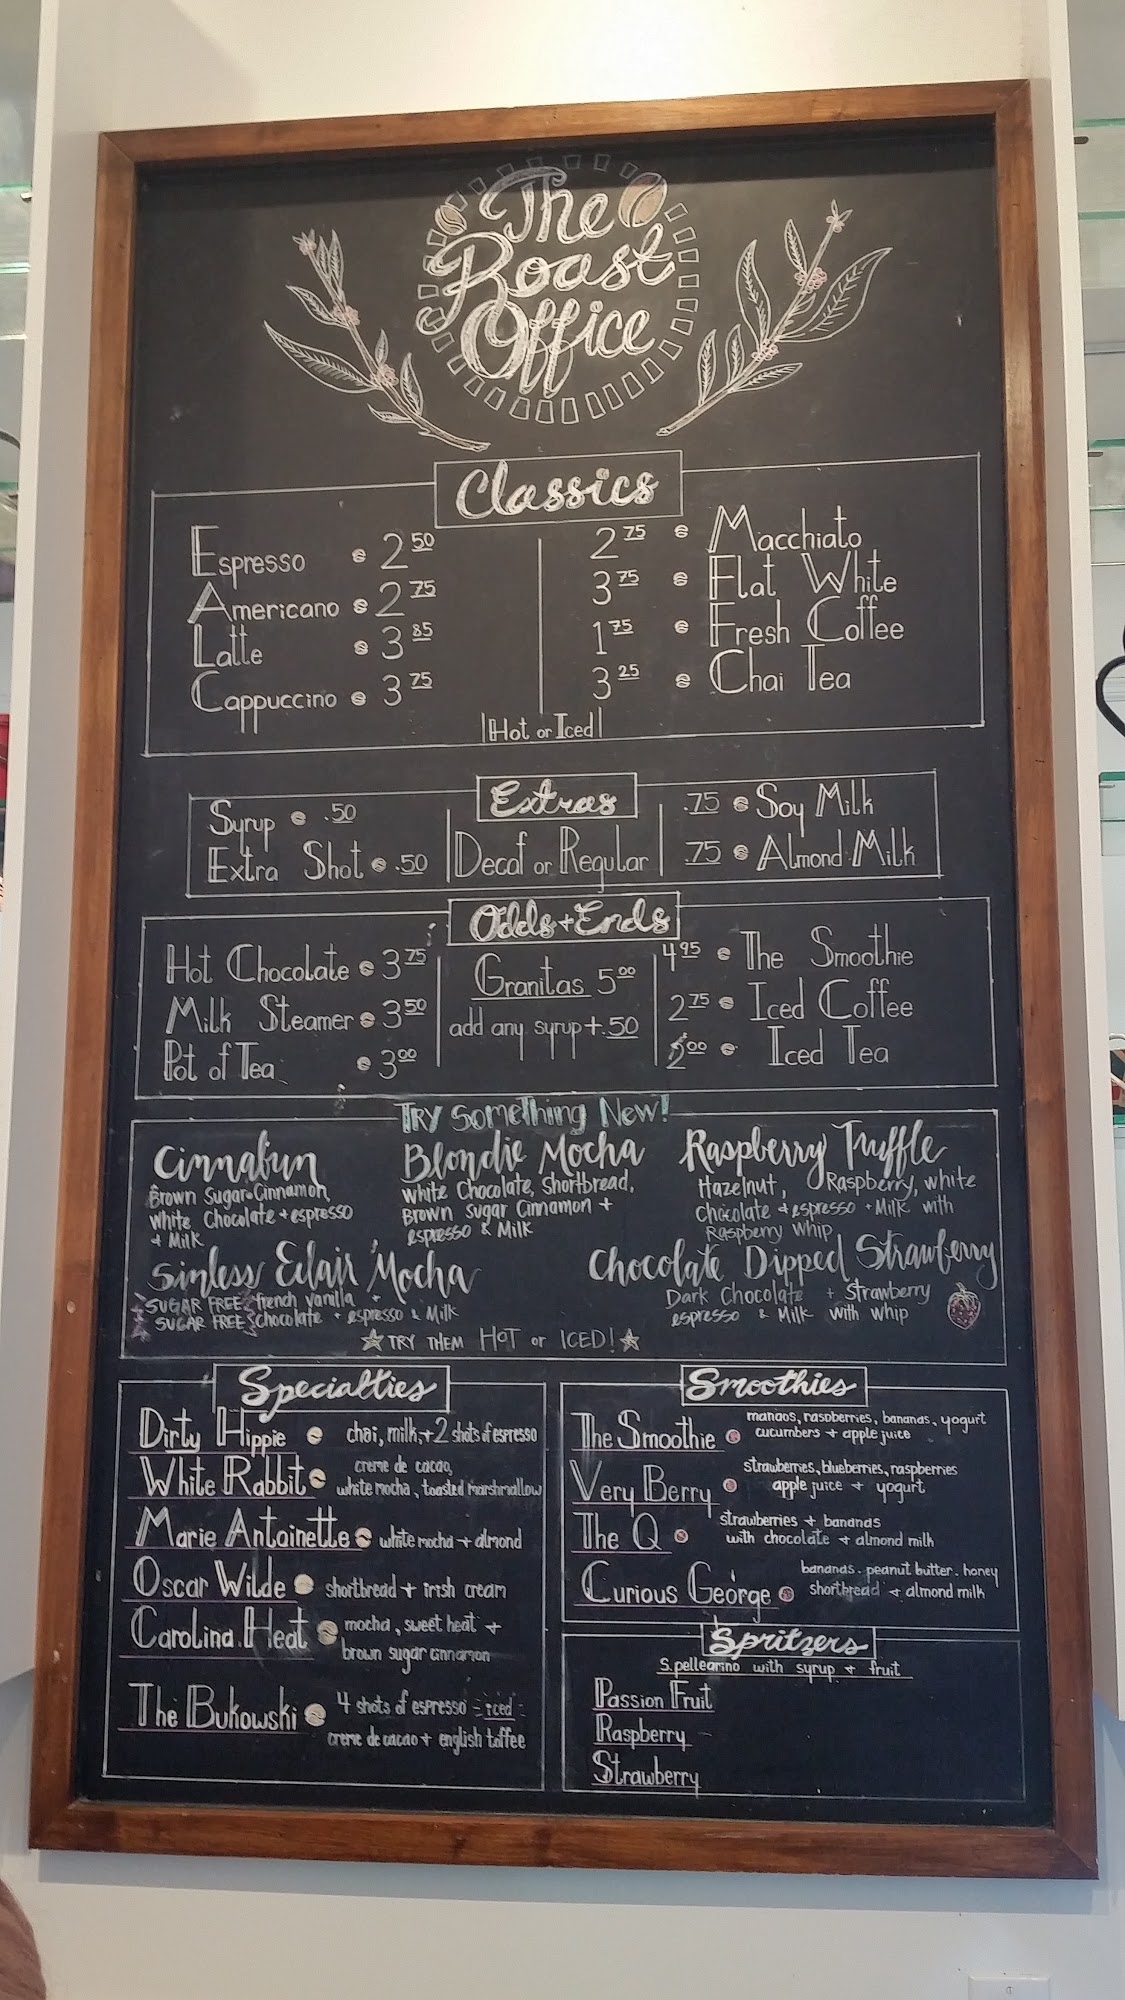 The
Roast
Office
Classics
Espresso 2 50
Americano 2 75
Latte 3 85
Cappuccino 3 75
2 75 Macchiato
3 75 Flat White
1 75 Fresh Coffee
3 25 Chai Tea
Hot or Iced
Extras
Syrup .50
Extra Shot .50
Decaf or Regular
.75 Soy Milk
.75 Almond Milk
Odds + Ends
Hot Chocolate 3 75
Milk Steamer 3 50
Pot of Tea 3 00
Granitas 5 00
add any syrup +.50
4 95 The Smoothie
2 75 Iced Coffee
2 00 Iced Tea
TRY SOMETHING NEW!
Cinnabun
Brown Sugar Cinnamon,
White Chocolate + espresso
+ Milk
Blondie Mocha
White Chocolate, Shortbread,
Brown Sugar Cinnamon +
espresso & Milk
Raspberry Truffle
Hazelnut, Raspberry, White
Chocolate + espresso + Milk with
Raspberry Whip
Sinless Eclair Mocha
SUGAR FREE french vanilla +
SUGAR FREE chocolate + espresso & Milk
Chocolate Dipped Strawberry
Dark Chocolate + Strawberry
espresso & Milk with whip
TRY THEM HOT or ICED!
Specialties
Dirty Hippie chai, milk, + 2 shots of espresso
White Rabbit creme de cacao,
white mocha, toasted marshmallow
Marie Antoinette white mocha + almond
Oscar Wilde shortbread + irish cream
Carolina Heat mocha, sweet heat +
brown sugar cinnamon
The Bukowski 4 shots of espresso - iced -
creme de cacao + english toffee
Smoothies
The Smoothie mangos, raspberries, bananas, yogurt
cucumbers + apple juice
Very Berry strawberries, blueberries, raspberries
apple juice + yogurt
The Q strawberries + bananas
with chocolate + almond milk
Curious George bananas. peanut butter. honey
shortbread + almond milk
Spritzers
S.pellegrino with syrup + fruit
Passion Fruit
Raspberry
Strawberry